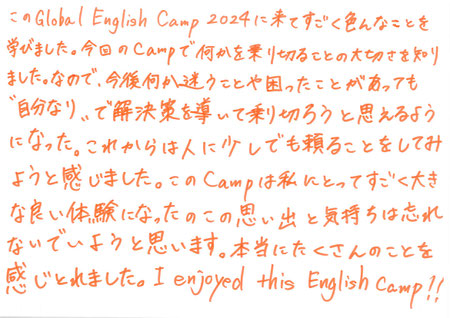 このGlobal English Camp 2024に来てすごく色んなことを
学びました。今回のCampで何かを乗り切ることの大切さを知り
ました。なので、今後何か迷うことや困ったことがあっても
"自分なり"で解決策を導いて乗り切ろうと思えるよう
になった。これからは人に少しでも頼ることをしてみ
ようと感じました。このCampは私にとってすごく大き
な良い体験になったのこの思い出と気持ちは忘れ
ないでいようと思います。本当にたくさんのことを
感じとれました。I enjoyed this English Camp!!